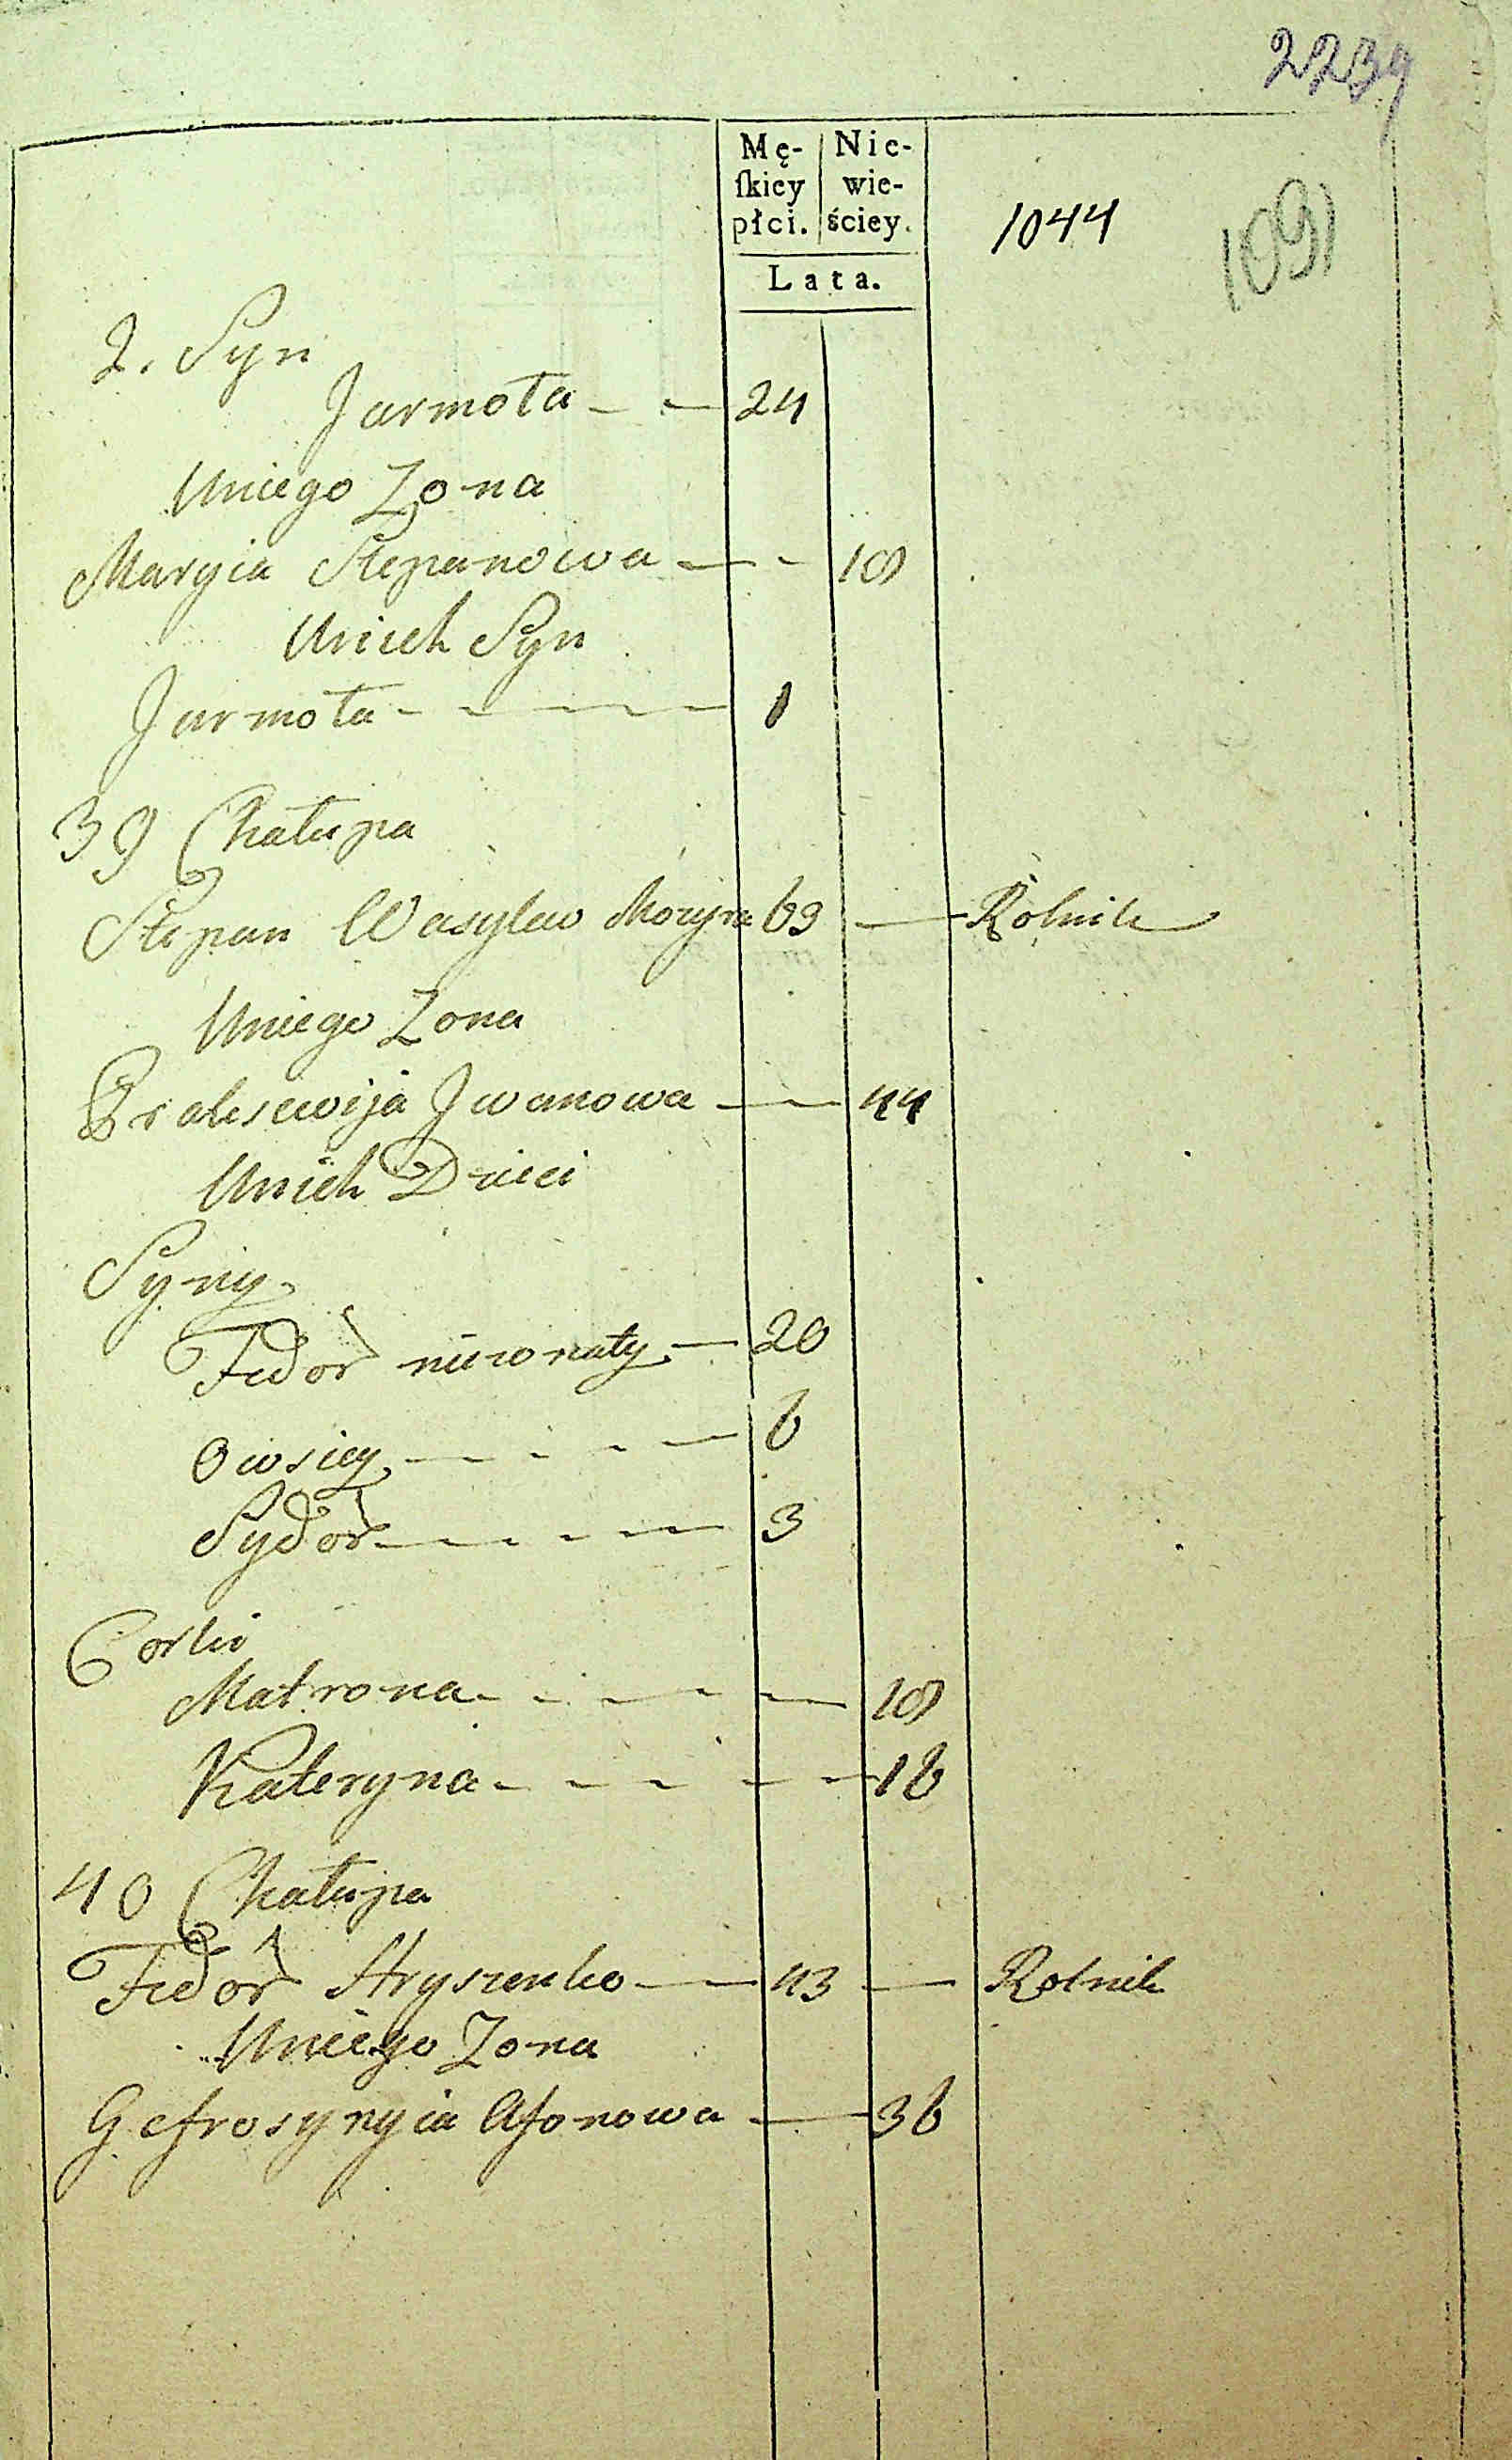 2239
Mę-
ſkiey
płci.
Nie-
wie-
ściey.
Lata.
1044
1091
2. Syn
Jarmoła 24
Uniego Zona
Maryia Stepanowa 18
Unich Syn
Jarmoła 1
39 Chałupa
Stepan Wasylew 63 Rolnik
Uniego Zona
Jwanowa 44
Unich Dzieci
Syny
Fedor nieżonaty 20
Owsiey 6
Sydor 3
Corki
Matrona 18
Kateryna 16
40 Chałupa
Fedor Hryszenko 43 Rolnik
Uniego Zona
Gefrosynyia Afonowa 36